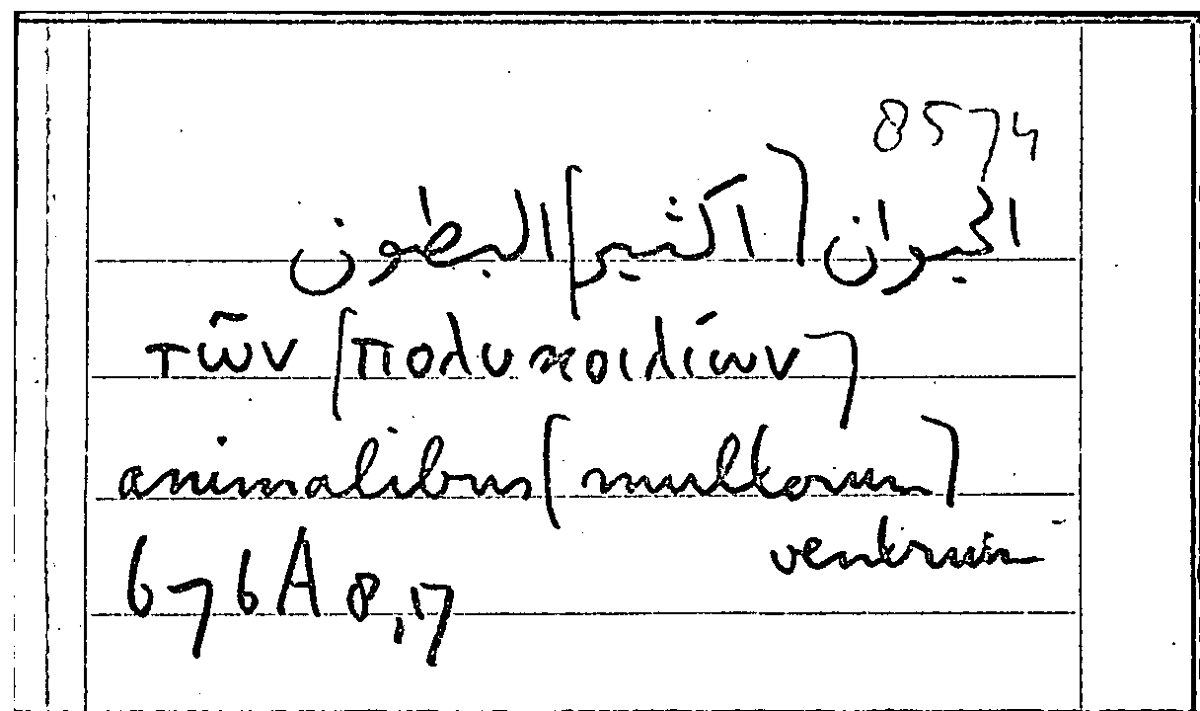 8574
الحيوان [اكثير] البطون
τῶν [πολυκοιλίων]
animalibus [multorum]
ventrum
676A 8,17